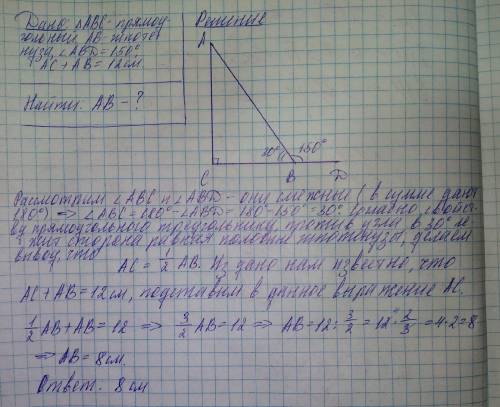 Дано: △ABC - прямоу-
гольный AB - гипоте
нуза, ∠ABD = 150°
AC + AB = 12 см.
Найти: AB - ?
Решение
A
30° 150°
C B D
Рассмотрим ∠ABC и ∠ABD - они смежные (в сумме дают
180°) => ∠ABC = 180° - ∠ABD = 180 - 150° = 30° согласно свойст-
ву прямоугольного треугольника, против угла в 30° ле-
жит сторона равная половине гипотенузы, делаем
вывод, что AC = 1/2 AB. Из дано нам известно, что
AC + AB = 12 см, подставим в данное выражение AC.
1/2 AB + AB = 12 => 3/2 AB = 12 => AB = 12 : 3/2 = 12 · 2/3 = 4 · 2 = 8
=> AB = 8 см.
Ответ. 8 см